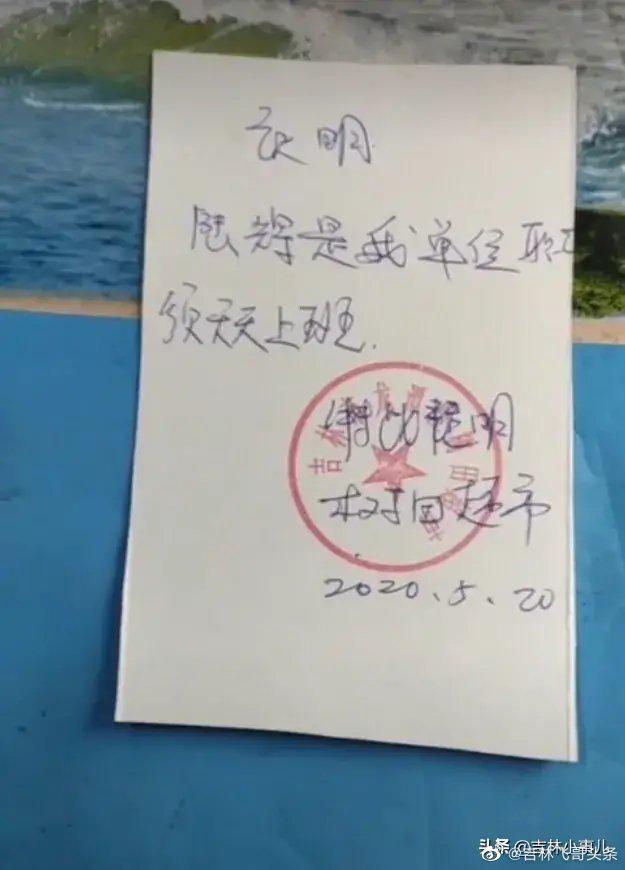 证明
陆辉是我单位职工
须天天上班.
特此证明
树田超市
2020.5.20
头条 @吉林小事儿
@吉林飞哥头条